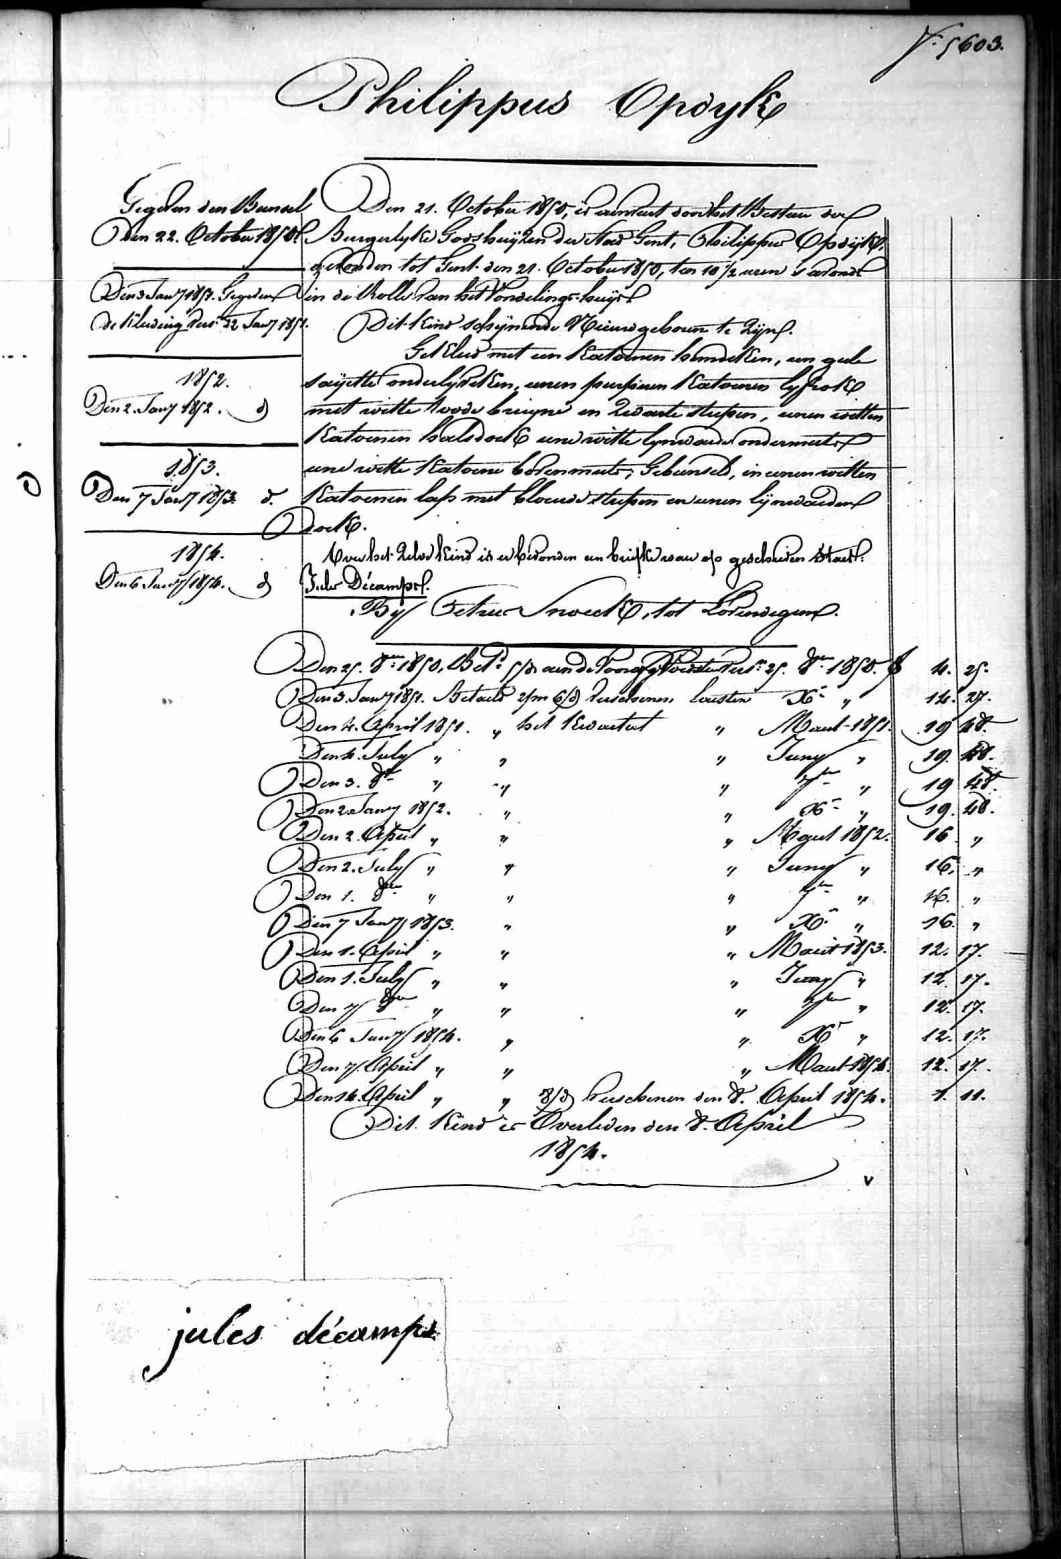 N.º 5603.
Philippus Opdyk
Gegeven den Bunsel
den 22. October 1850.
Den 3 Janÿ 1851. Gegeven
de Kleeding Vers. 22 Janÿ 1851.
1852.
Den 2. Janÿ 1852. d
1853.
Den 7 Janÿ 1853. d.
1854.
Den 6 Janÿ 1854. d
Den 21. October 1850, is aenveert door het Bestuer der
Burgerlyke Godshuyzen der Stad Gent, Philippus Opdyk,
gevonden tot Gent den 21. October 1850, ten 10 1/2 uren s'avonds
in de Rolle van het Vondelings-huys
Dit kind schynende Nieuwgeboren te zyn.
Gekleed met een Katoenen hemdeken, een gele
sayette onderlyveken, eenen purperen Katoenen lyfrok
met witte roode bruyne en zwarte strepen, eenen witten
Katoenen halsdoek eene witte lynwaede ondermuts
eene witte Katoene bovenmuts, Gebunseld, in eenen witten
Katoenen lap met blauwe strepen en eenen lynwaeden
doek.
Over het zelve kind is er bevonden een briefke waer op geschreven staet.
Jules Décamps.
By Petrus Snoeck, tot Lovendegem.
Den 25. 8bre 1850. Betd 5/m aen de Voorge Voedster Vers. 25. 8bre 1850. f 4. 25.
Den 3. Janÿ 1851. Betaeld 2/m 6/d verschenen lesten Xbre " 14. 27.
Den 4. April 1851. " het kwartael " Maert 1851. 19 48.
Den 4. July " " " Juny " 19. 48.
Den 3. 8bre " " " 7bre " 19 48.
Den 2 Janÿ 1852. " " Xbre " 19. 48.
Den 2. April " " " Maert 1852. 16 "
Den 2. July " " " Juny " 16. "
Den 1. 8bre " " " 7bre " 16. "
Den 7 Janÿ 1853. " " Xbre " 16. "
Den 1. April " " " Maert 1853. 12. 17.
Den 1. July " " " Juny " 12. 17.
Den 7 8bre " " " 7bre " 12. 17.
Den 6 Janÿ 1854. " " Xbre " 12. 17.
Den 7. April " " " Maert 1854. 12. 17.
Den 14. April " " 8/d Verschenen den 8. April 1854. 1. 11.
Dit Kind is Overleden den 8. April
1854.
v
jules décamps